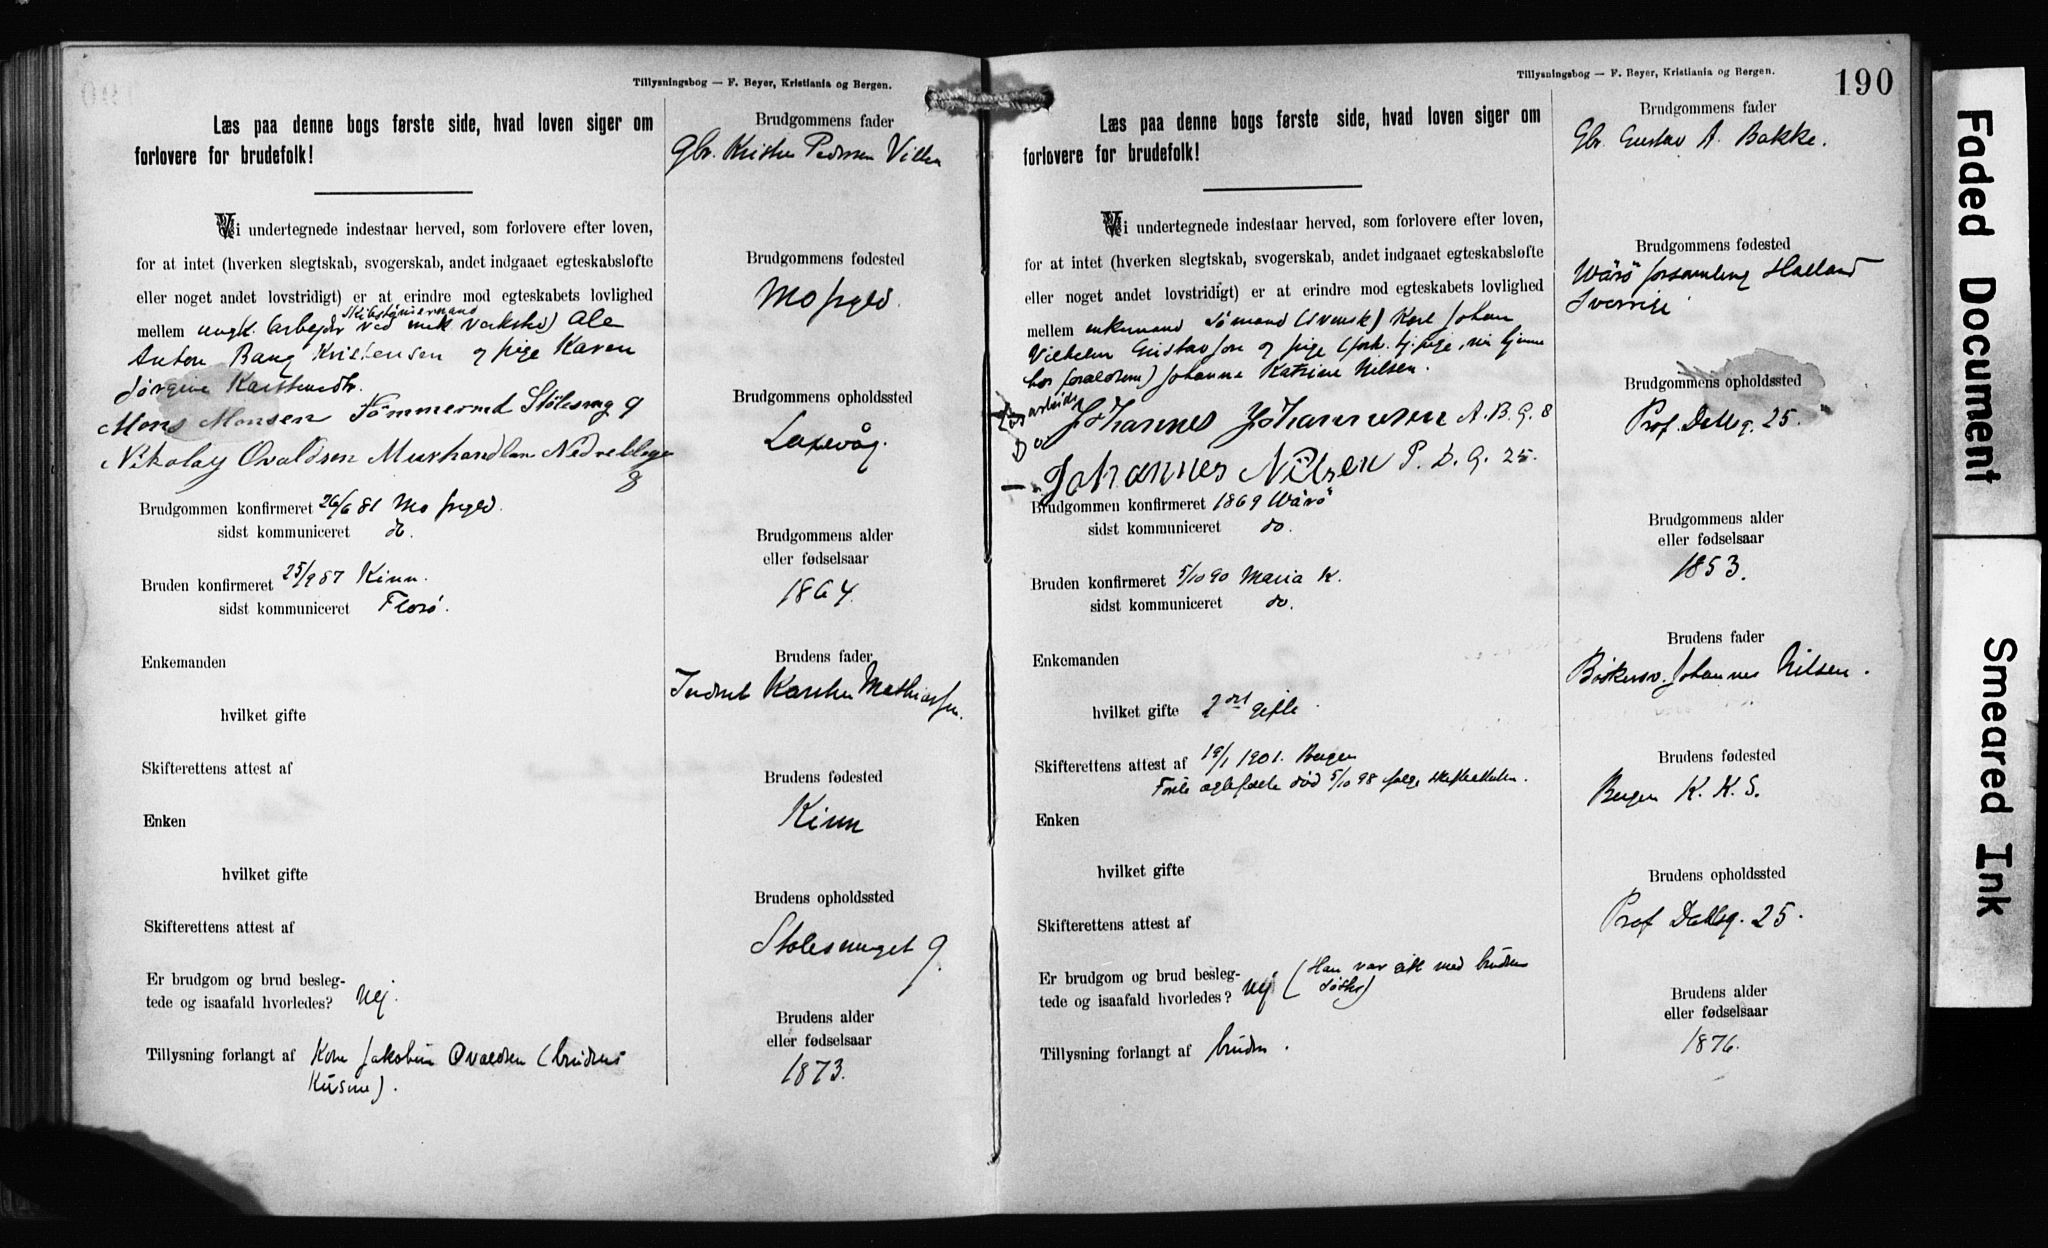 Tillysningsbog — F. Beyer, Kristiania og Bergen.
Læs paa denne bogs første side, hvad loven siger om
forlovere for brudefolk!
Vi undertegnede indestaar herved, som forlovere efter loven,
for at intet (hverken slegtskab, svogerskab, andet indgaaet egteskabsløfte
eller noget andet lovstridigt) er at erindre mod egteskabets lovlighed
Skibstømmermand
mellem ungk. (arbejder ved mek værksted) Ole
Anton Bang Kristensen og pige Karen
Jørgine Karstensdtr.
Mons Monsen Tømmermd Stølesmg 9
Nikolay Ovaldsen Murhandlan
8
Brudgommen konfirmeret 26/6 81 Mo prgld.
sidst kommuniceret do.
Bruden konfirmeret 25/9 87 Kinn.
sidst kommuniceret Florø.
Enkemanden
hvilket gifte
Skifterettens attest af
Enken
hvilket gifte
Skifterettens attest af
Er brudgom og brud besleg-
tede og isaafald hvorledes? Nej.
Tillysning forlangt af Kone Jakobine Ovaldsen (brudens
Kusine).
Brudgommens fader
Gbr. Kristen Pedersen
Brudgommens fødested
Mo prgld.
Brudgommens opholdssted
Laxevåg.
Brudgommens alder
eller fødselsaar
1864.
Brudens fader
Inderst Karsten Mathiassen.
Brudens fødested
Kinn
Brudens opholdssted
Stølesmuget 9.
Brudens alder
eller fødselsaar
1873.
Tillysningsbog — F. Beyer, Kristiania og Bergen.
190
Læs paa denne bogs første side, hvad loven siger om
forlovere for brudefolk!
Vi undertegnede indestaar herved, som forlovere efter loven,
for at intet (hverken slegtskab, svogerskab, andet indgaaet egteskabsløfte
eller noget andet lovstridigt) er at erindre mod egteskabets lovlighed
mellem enkemand Sømand (svensk) Karl Johan
Vilhelm Gustavson og pige (forh. tj.pige, nu hjemme
hos forældrene) Johanne Katrine Nilsen.
Johannes Johannesen A. B. G. 8
Do
Johannes Nilsen P. D. G. 25.
Brudgommen konfirmeret 1869 Wärö
sidst kommuniceret do.
Bruden konfirmeret 5/10 90 Maria K.
sidst kommuniceret do.
Enkemanden
hvilket gifte 2det gifte.
Skifterettens attest af 19/1 1901. Bergen
Forrige ægtefælle død 5/10 98 ifølge skifteattesten.
Enken
hvilket gifte
Skifterettens attest af
Er brudgom og brud besleg-
tede og isaafald hvorledes? Nej (Han var gift med brudens
søster)
Tillysning forlangt af bruden.
Brudgommens fader
Gbr. Gustav A. Bakke.
Brudgommens fødested
Wärö forsamling Halland
Sverrige
Brudgommens opholdssted
Prof. Dallsg. 25.
Brudgommens alder
eller fødselsaar
1853.
Brudens fader
Bødkersv. Johannes Nilsen.
Brudens fødested
Bergen K. K. S.
Brudens opholdssted
Prof Dallsg. 25.
Brudens alder
eller fødselsaar
1876.
Faded Document
Smeared Ink